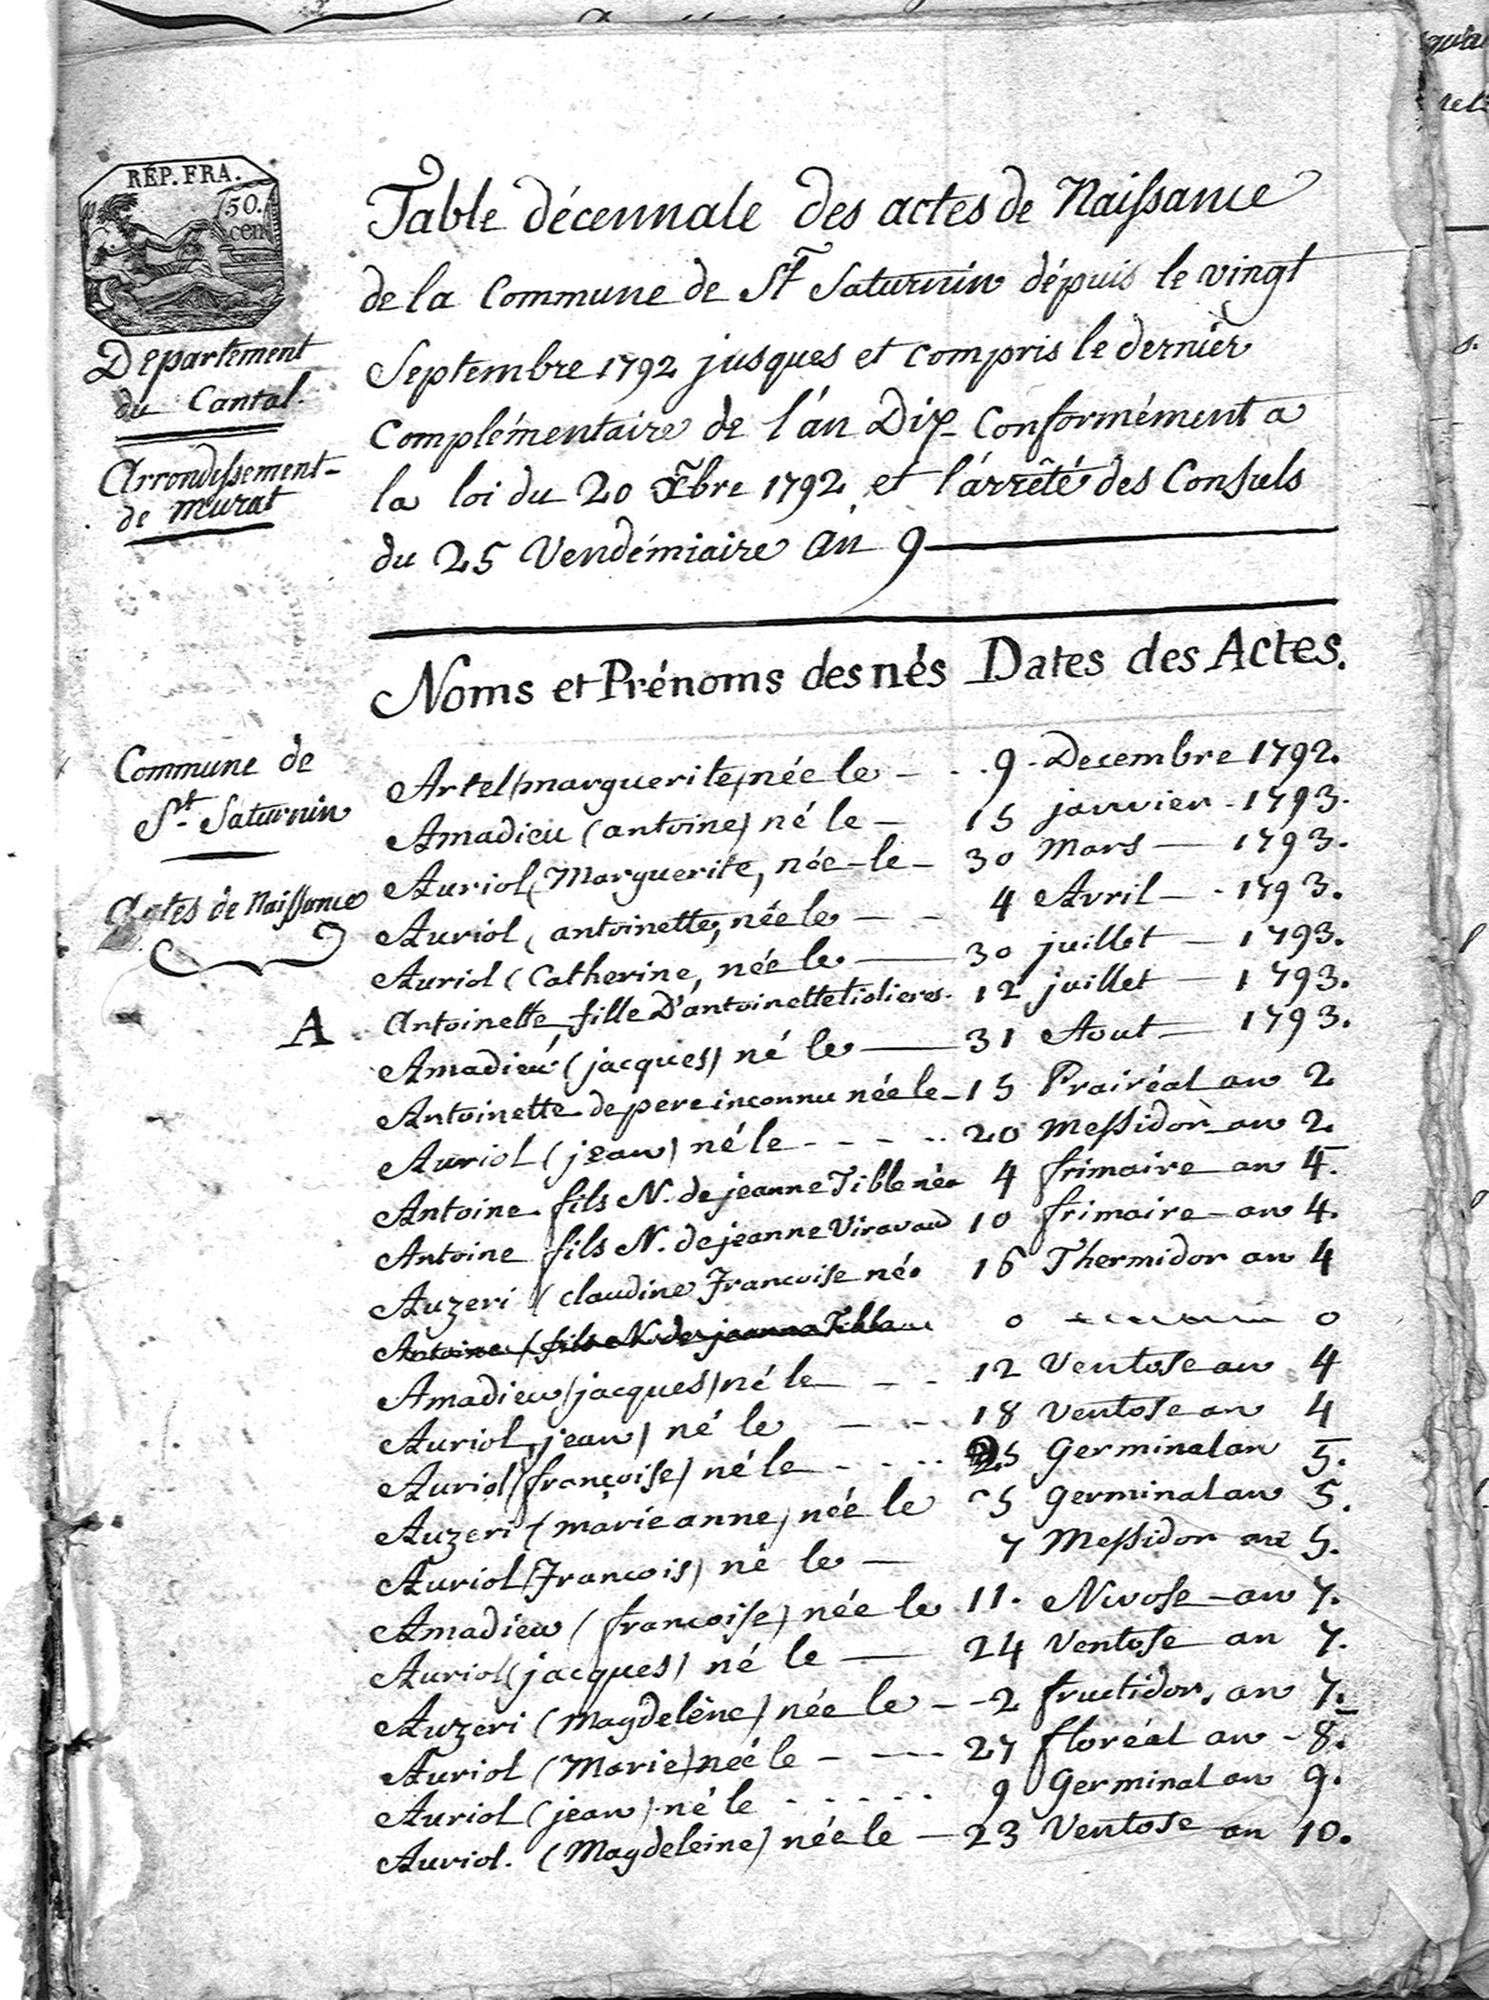 RÉP. FRA.
50.
cen
Departement
du Cantal.
Arrondissement
de murat
Table décennale des actes de Naissance
de la Commune de St Saturnin dépuis le vingt
Septembre 1792 jusques et compris le dernier
Complémentaire de l'án Dix Conformément a
la loi du 20 Xbre 1792 et l'árrêté des Consuls
du 25 Vendémiaire an 9
Noms et Prénoms des nés Dates des Actes.
Commune de
St Saturnin
Actes de Naissance
A
Artel (marguerite) née le - - . 9 - Decembre 1792.
Amadieu (antoine) né le - 15 janvier - 1793.
Auriol (Marguerite, née - le - 30 Mars - 1793.
Auriol (antoinette, née le - - 4 Avril - - 1793.
Auriol (Catherine, née le - 30 juillet - 1793.
Antoinette fille D'antoinette tiolieres. 12 juillet - 1793.
Amadieu (jacques) né le - 31 Aout - 1793.
Antoinette de pere inconnu née le - 15 Prairéal an 2
Auriol (jean) né le - - - - 20 Messidor an 2.
Antoine fils N. de jeanne Tible né 4 frimaire an 4.
Antoine fils N. de jeanne Viravaud 10 frimaire - an 4.
Auzeri (claudine Francoise né. 16 Thermidor an 4
Antoine (fils N. de jeanne Tible 0 0
Amadieu (jacques) né le - - 12 Ventose an 4
Auriol (jean) né le - - - 18 Ventose an 4
Auriol (françoise) né le - - - - 25 Germinal an 5.
Auzeri (marie anne) née le 5 Germinal an 5.
Auriol (Francois) né le - 7 Messidor an 5.
Amadieu (francoise) née le 11. Nivose - an 7.
Auriol (jacques) né le - 24 Ventose an 7.
Auzeri (Magdelène) née le - - 2 fructidor. an 7.
Auriol (Marie) née le - - - 27 floréal an - 8.
Auriol (jean) né le - - - - - 9 Germinal an 9.
Auriol. (Magdeleine) née le - 23 Ventose an 10.